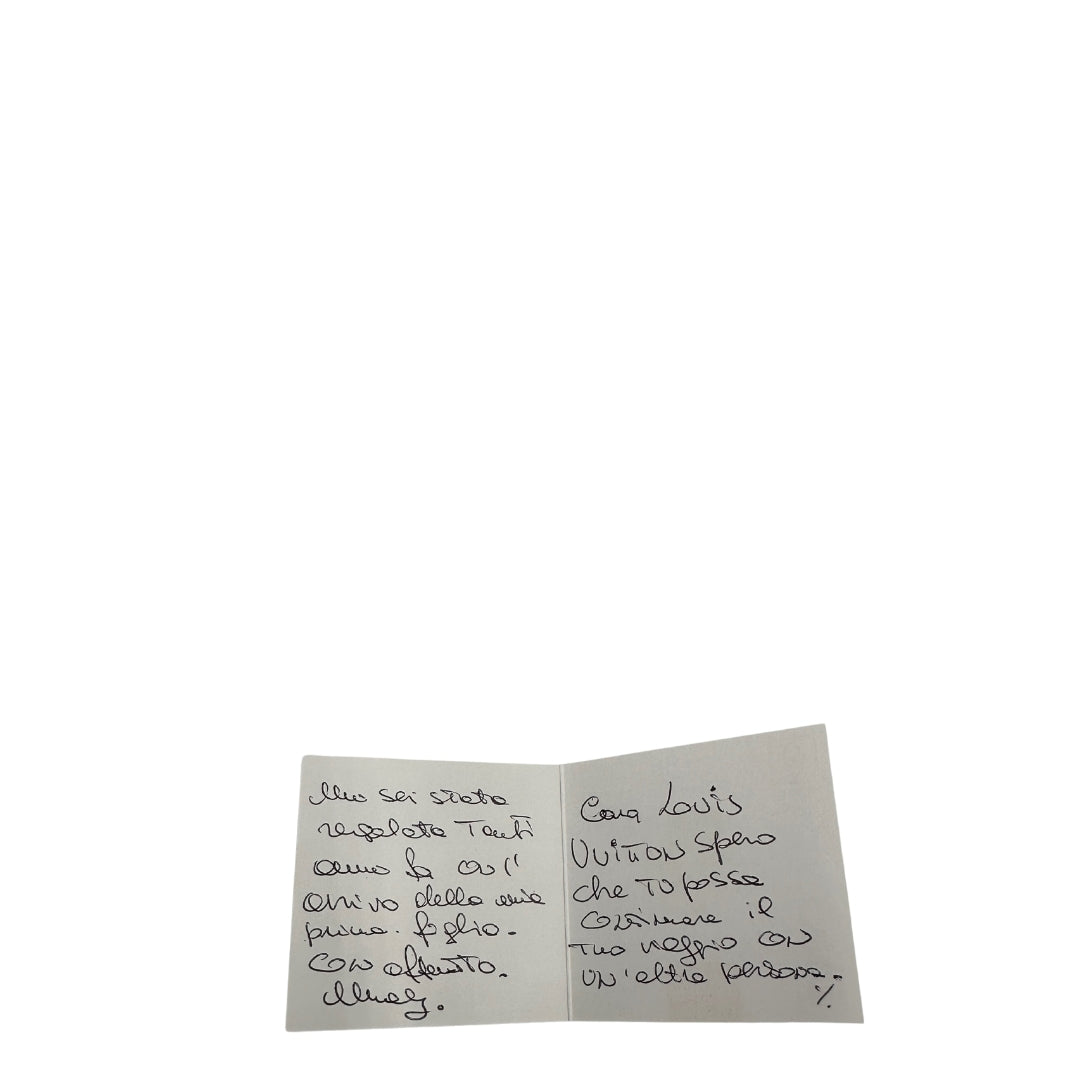 Cara Louis
Vuitton spero
che tu possa
continuare il
tuo viaggio con
un'altra persona.-
./.
Mi sei stata
regalata Tanti
anni fa con l'
arrivo della mia
prima figlia.
Con affetto.